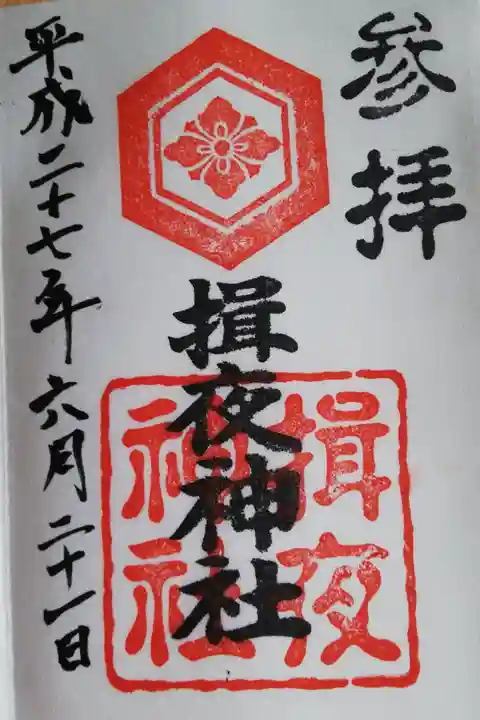 参拝
揖夜神社
揖夜
神社
平成二十七年六月二十一日